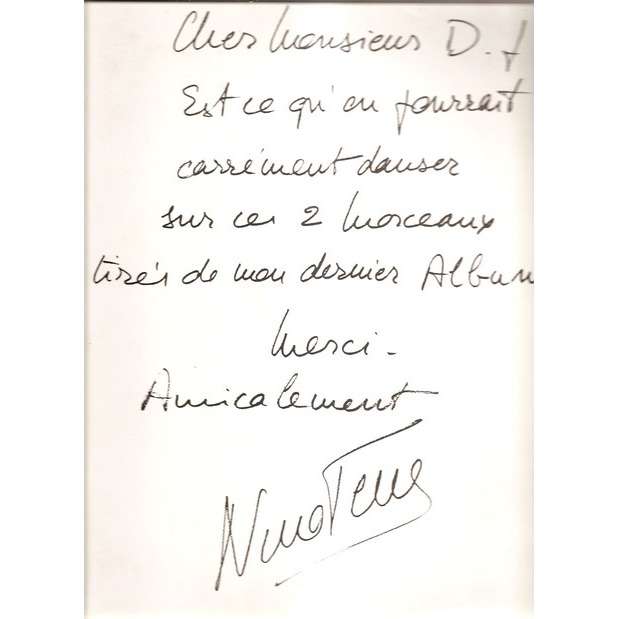 Cher Monsieur D.J
Est ce qu'on pourrait
carrément danser
sur ces 2 morceaux
tirés de mon dernier Album
Merci -
Amicalement
Nino Ferrer